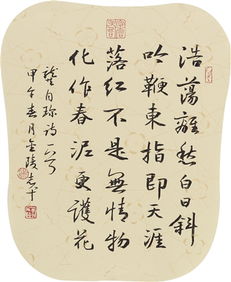 浩蕩離愁白日斜
吟鞭東指即天涯
落紅不是無情物
化作春泥更護花
龔自珍詩一首
甲午春月金陵